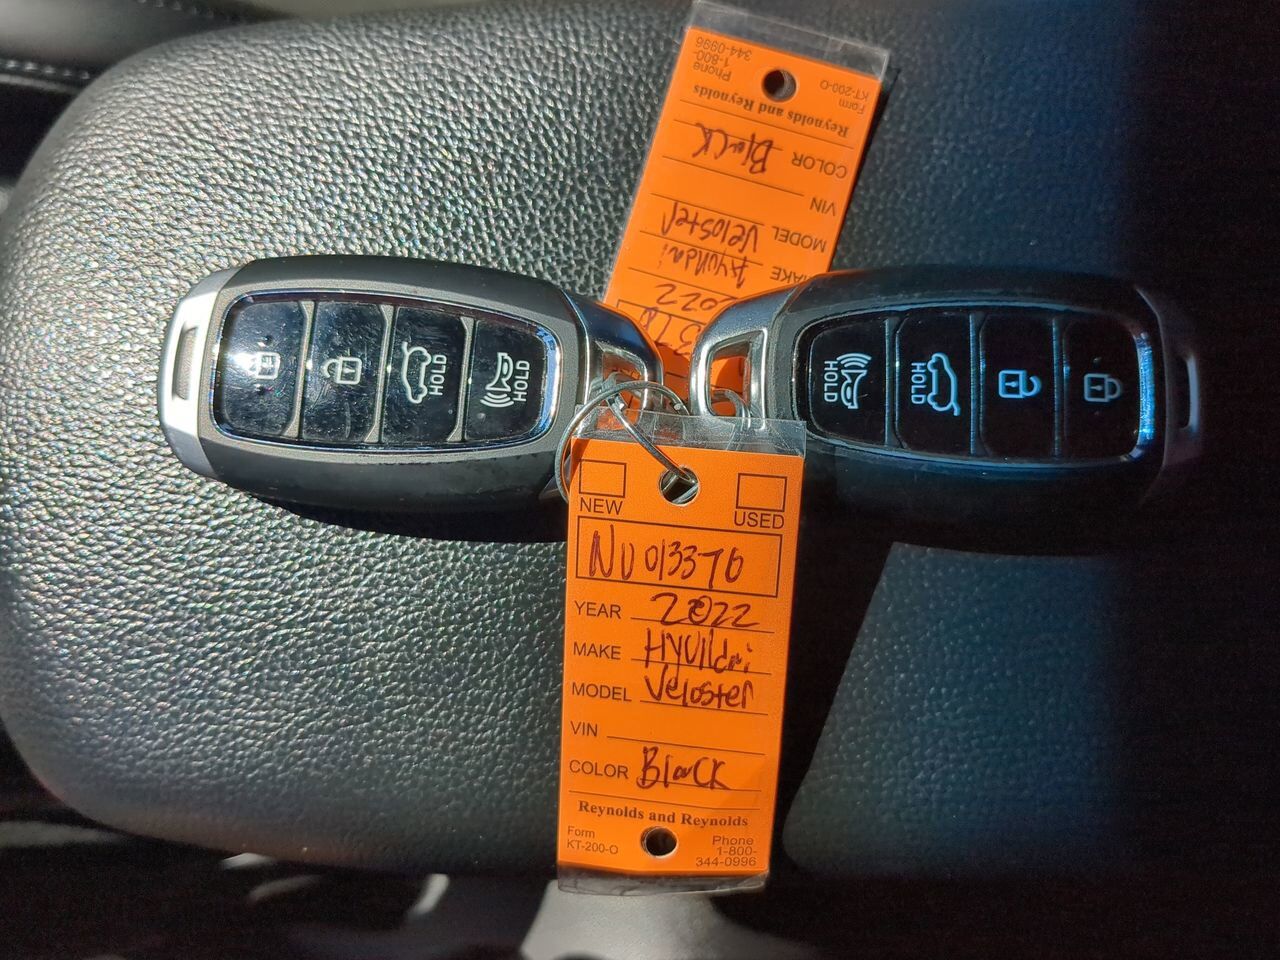 344-0996
1-800-
Phone
Form
KT-200-O
Reynolds and Reynolds
COLOR Black
VIN
MODEL Veloster
MAKE Hyundai
2022
HOLD
HOLD
HOLD
HOLD
NEW
USED
NU013376
YEAR 2022
MAKE Hyundai
MODEL Veloster
VIN
COLOR Black
Reynolds and Reynolds
Form
KT-200-O
Phone
1-800-
344-0996